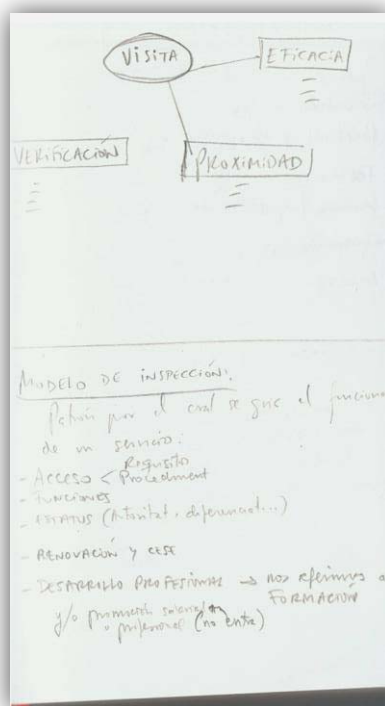 VISITA
EFICACIA
VERIFICACIÓN
PROXIMIDAD
MODELO DE INSPECCIÓN:
Patrón por el cual se guía el funciona
de un servicio:
Requisito
- ACCESO < Procediment
- FUNCIONES
- ESTATUS (Autoritat, diferenciat...)
- RENOVACIÓN Y CESE
- DESARROLLO PROFESIONAL → nos referimos a
FORMACIÓN
y/o promoción
o profesional (no entra)